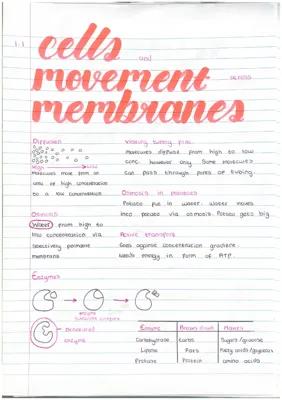 1.1
cells and
movement across
membranes
Diffusion
High → Low
Molecules move from an
area of high concentration
to a low concentration
Visking tubing prac.
Molecules diffuse from high to low
conc. however only some molecules
can pass through pores of tubing.
Osmosis in potatoes
Potato put in water. Water moves
into potato via osmosis. Potato gets big.
Osmosis
Water from high to
low concentration via
selectively permable
membrane
Active transport
Goes against concentration gradient
needs energy in form of ATP.
Enzymes
enzyme
substrate complex
Denatured
enzyme
Enzyme Broken down Makes
Carbohydrase Carbs Sugars/glucose
Lipase Fats Fatty acids/glycerol
Protease Protein amino acids